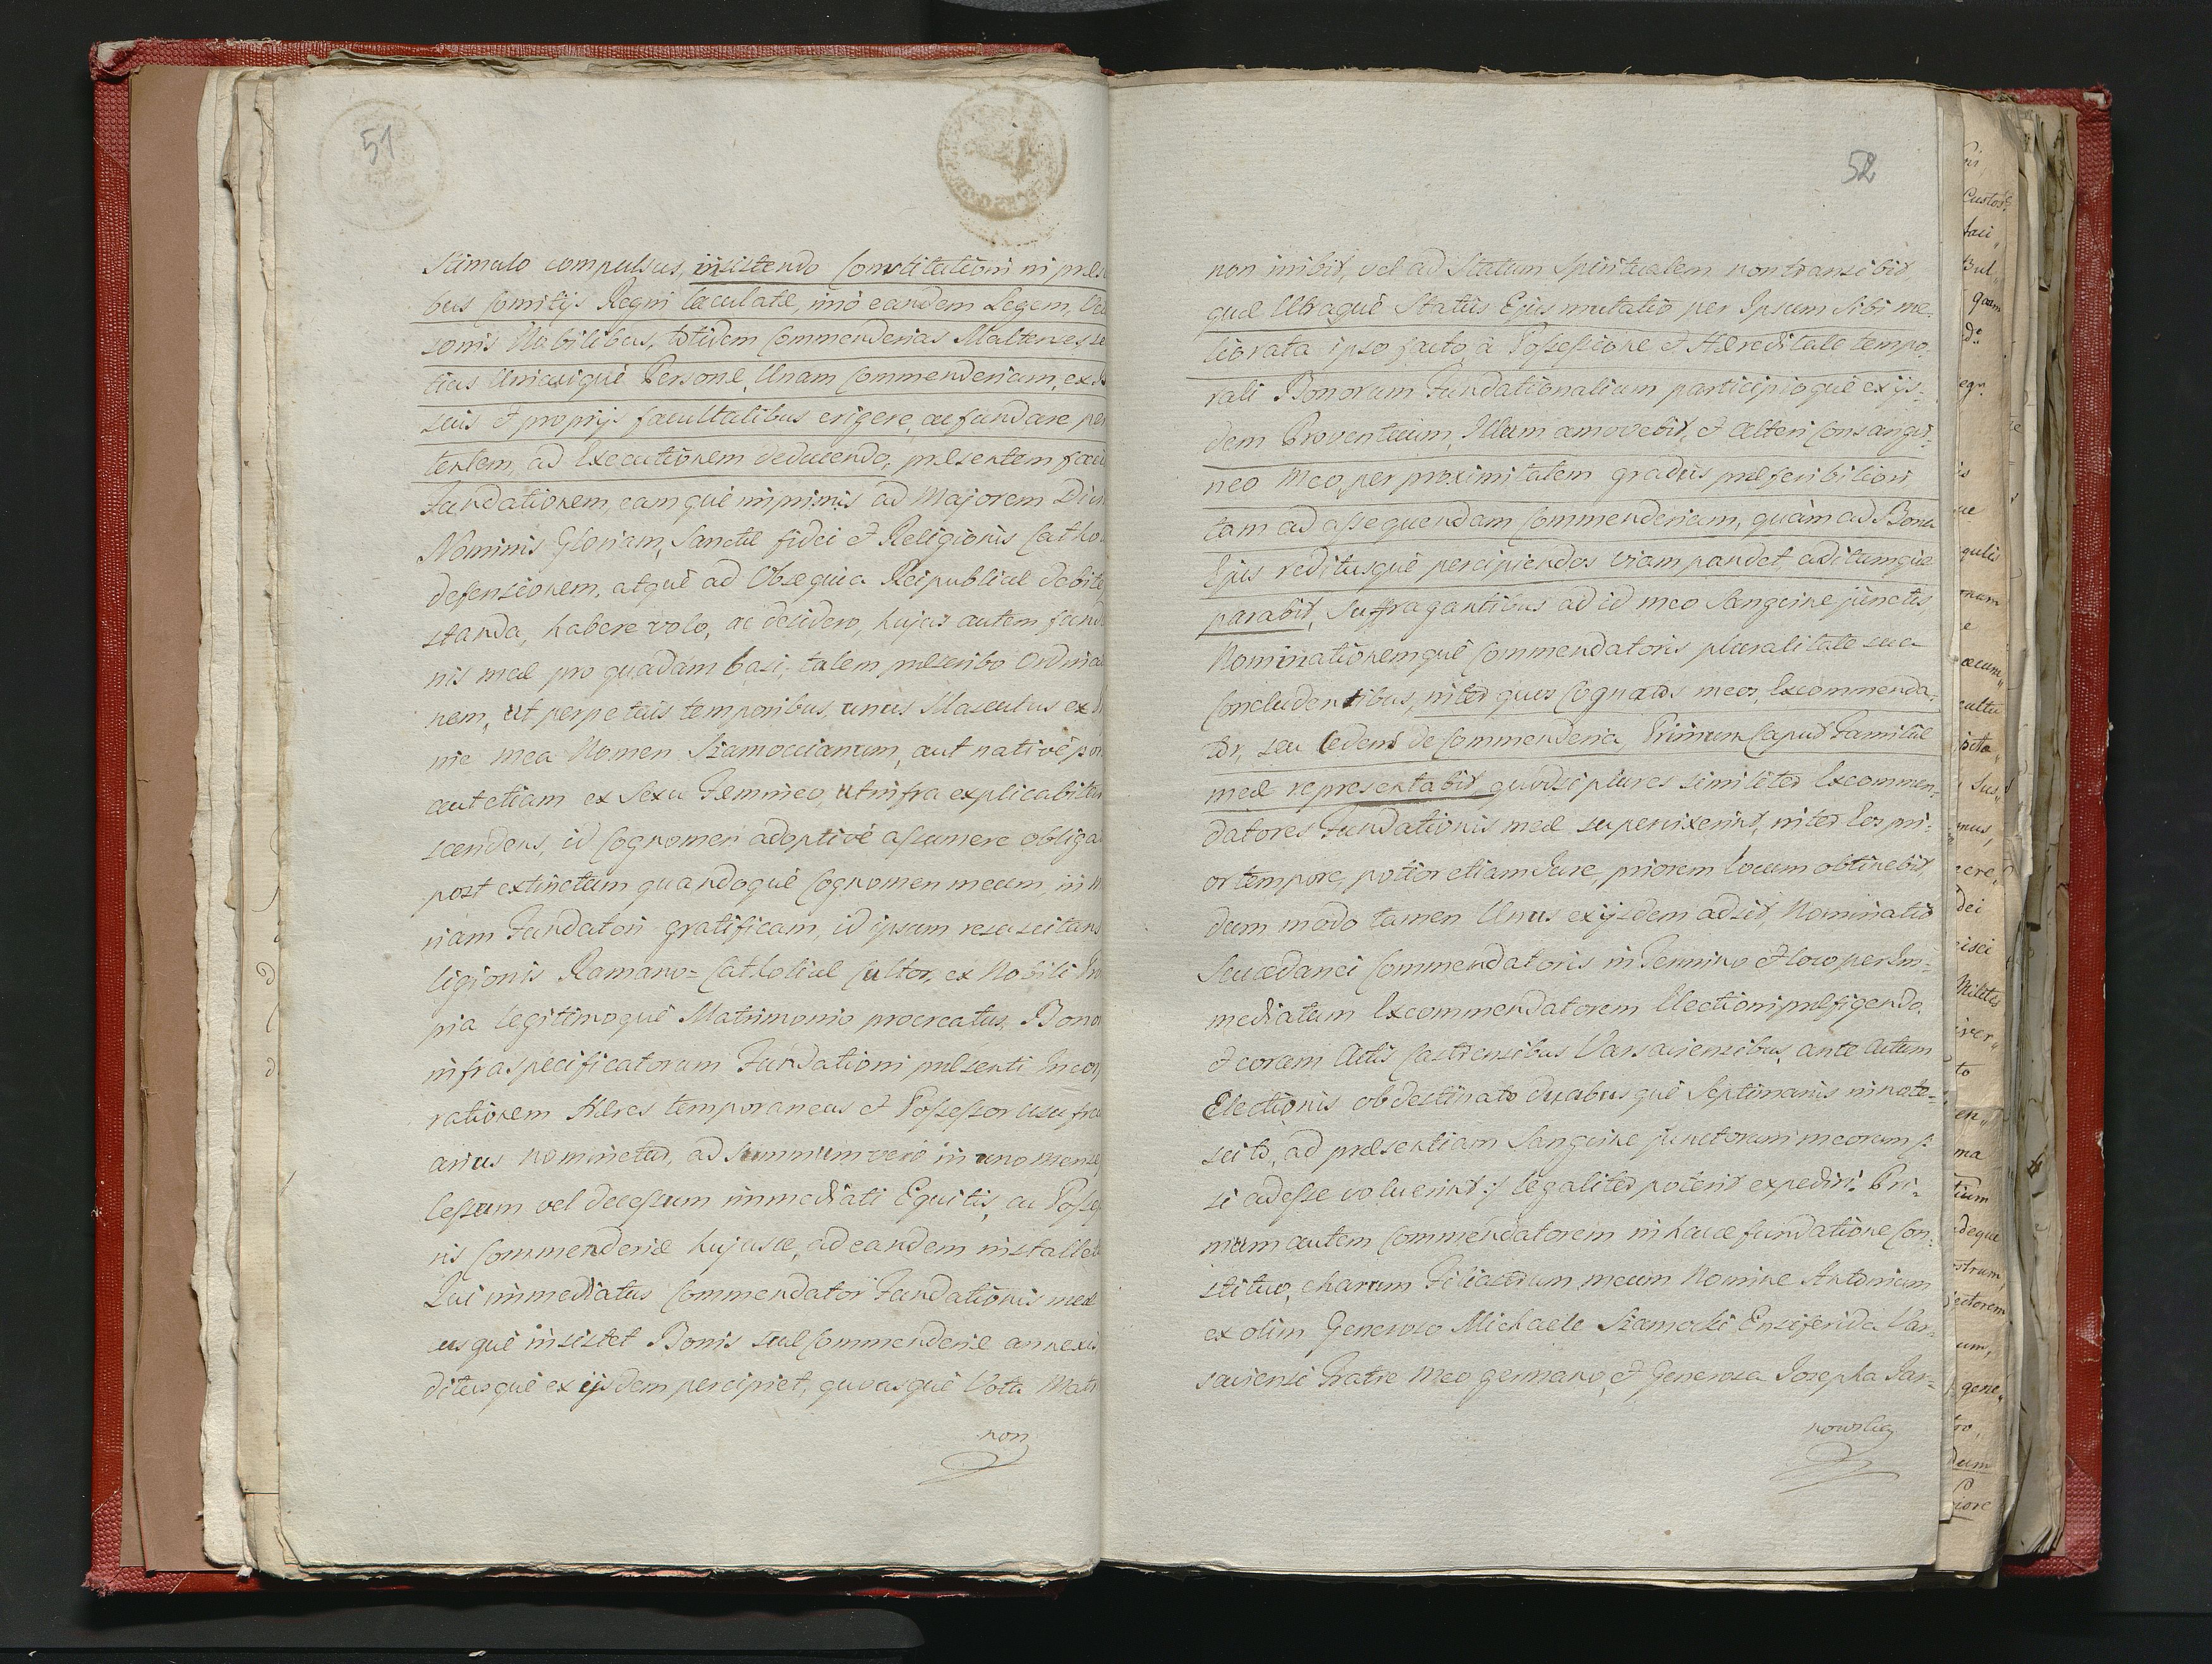 51
Stimulo compulsus, insistendo Constitutioni in præs
bus Comitijs Regni laculatæ, imò eandem Legem, Oc
sonis Nobilibus, totidem Commenderias Maltenses se
tius Uniusiquè Personæ, Unam Commenderiam, ex
suis et proprijs facultatibus erigere, ac fundare per
tentem, ad Executionem deducendo, præsentem faci
Fundationem, eamquè inprimis ad Majorem Divi
Nominis Gloriam, Sanctæ fidei et Religionis Catho
defensionem, atquè ad Obsequia Reipublicæ debite
standa, habere volo, ac desidero, hujus autem funda
nis meæ pro quadam basi, talem præscribo Ordina
nem, ut perpetuis temporibus, unus Masculus ex
nie mea Nomen Szamoccianum, aut nativè por
aut etiam ex Sexu Fæmineo, ut infra explicabitur
scendens, id Cognomen adoptivè assumere obliga
post extinctum quandoquè Cognomen meum, in m
riam Fundatori gratificam, id ipsum resuscitans
ligionis Romano=Catholicæ Cultor, ex Nobili
pia legitimoquè Matrimonio procreatus, Bono
infraspecificatorum Fundationi præsenti Incor
rationem Hæres temporaneus et Possessor usu fru
arius nominetur, ad summum verò in uno mense
cessum vel decessum immediati Equitis, ac Posse
ris Commenderiæ hujusce, ad eandem installet
Qui immediatus Commendator Fundationis meæ
usquè insistet Bonis suæ Commenderiæ annexis
ditusquè ex ijsdem percipiet, quousquè Vota Matr
non
52
non inibit, vel ad Statum Spiritualem non transibit
quæ Utraquè Statûs Ejus mutatio per Ipsum Sibi me-
liorata ipso facto, à Possessione et Hæreditate tempo-
rali Bonorum Fundationalium participioquè ex ijs-
dem Proventuum, Illum amovebit, et alteri Consangvi-
neo Meo, per proximitatem gradûs præferibiliori
tam ad assequendam Commenderiam, quàm ad Bona
Ejus reditusquè percipiendos viam pandet, aditumquè
parabit, Suffragantibus ad id meo Sangvine junctis,
Nominationemquè Commendatoris pluralitate sua
Concludentibus, inter quos Cognatos meos, Excommenda-
tor, seu Cedens de Commenderia, Primum Caput Familiæ
meæ representabit, quodsi plures similiter Excommen-
datores Fundationis meæ supervixerint, inter Eos pri-
or tempore, potior etiam Jure, priorem locum obtinebit,
dum modo tamen Unus ex ijsdem adsit, Nominatio
Succedanei Commendatoris in Termino et loco per Im-
mediatum Excommendatorem Electioni præfigendo,
et coram Actis Castrensibus Varsaviensibus, ante Actum
Electionis obdestinato duabusquè Septimanis innote-
scito, ad præsentiam Sangvine junctorum meorum /:
si adesse voluerint :/ legaliter poterit expediri. Pri-
mum autem Commendatorem in hacce fundatione Con-
stituo, charum Filiastrum meum Nomine Antonium
ex olim Generoso Michaele Szamocki Ensiferida Var-
saviensi Fratre meo germano, et Generosa Josepha Sar-
nowska